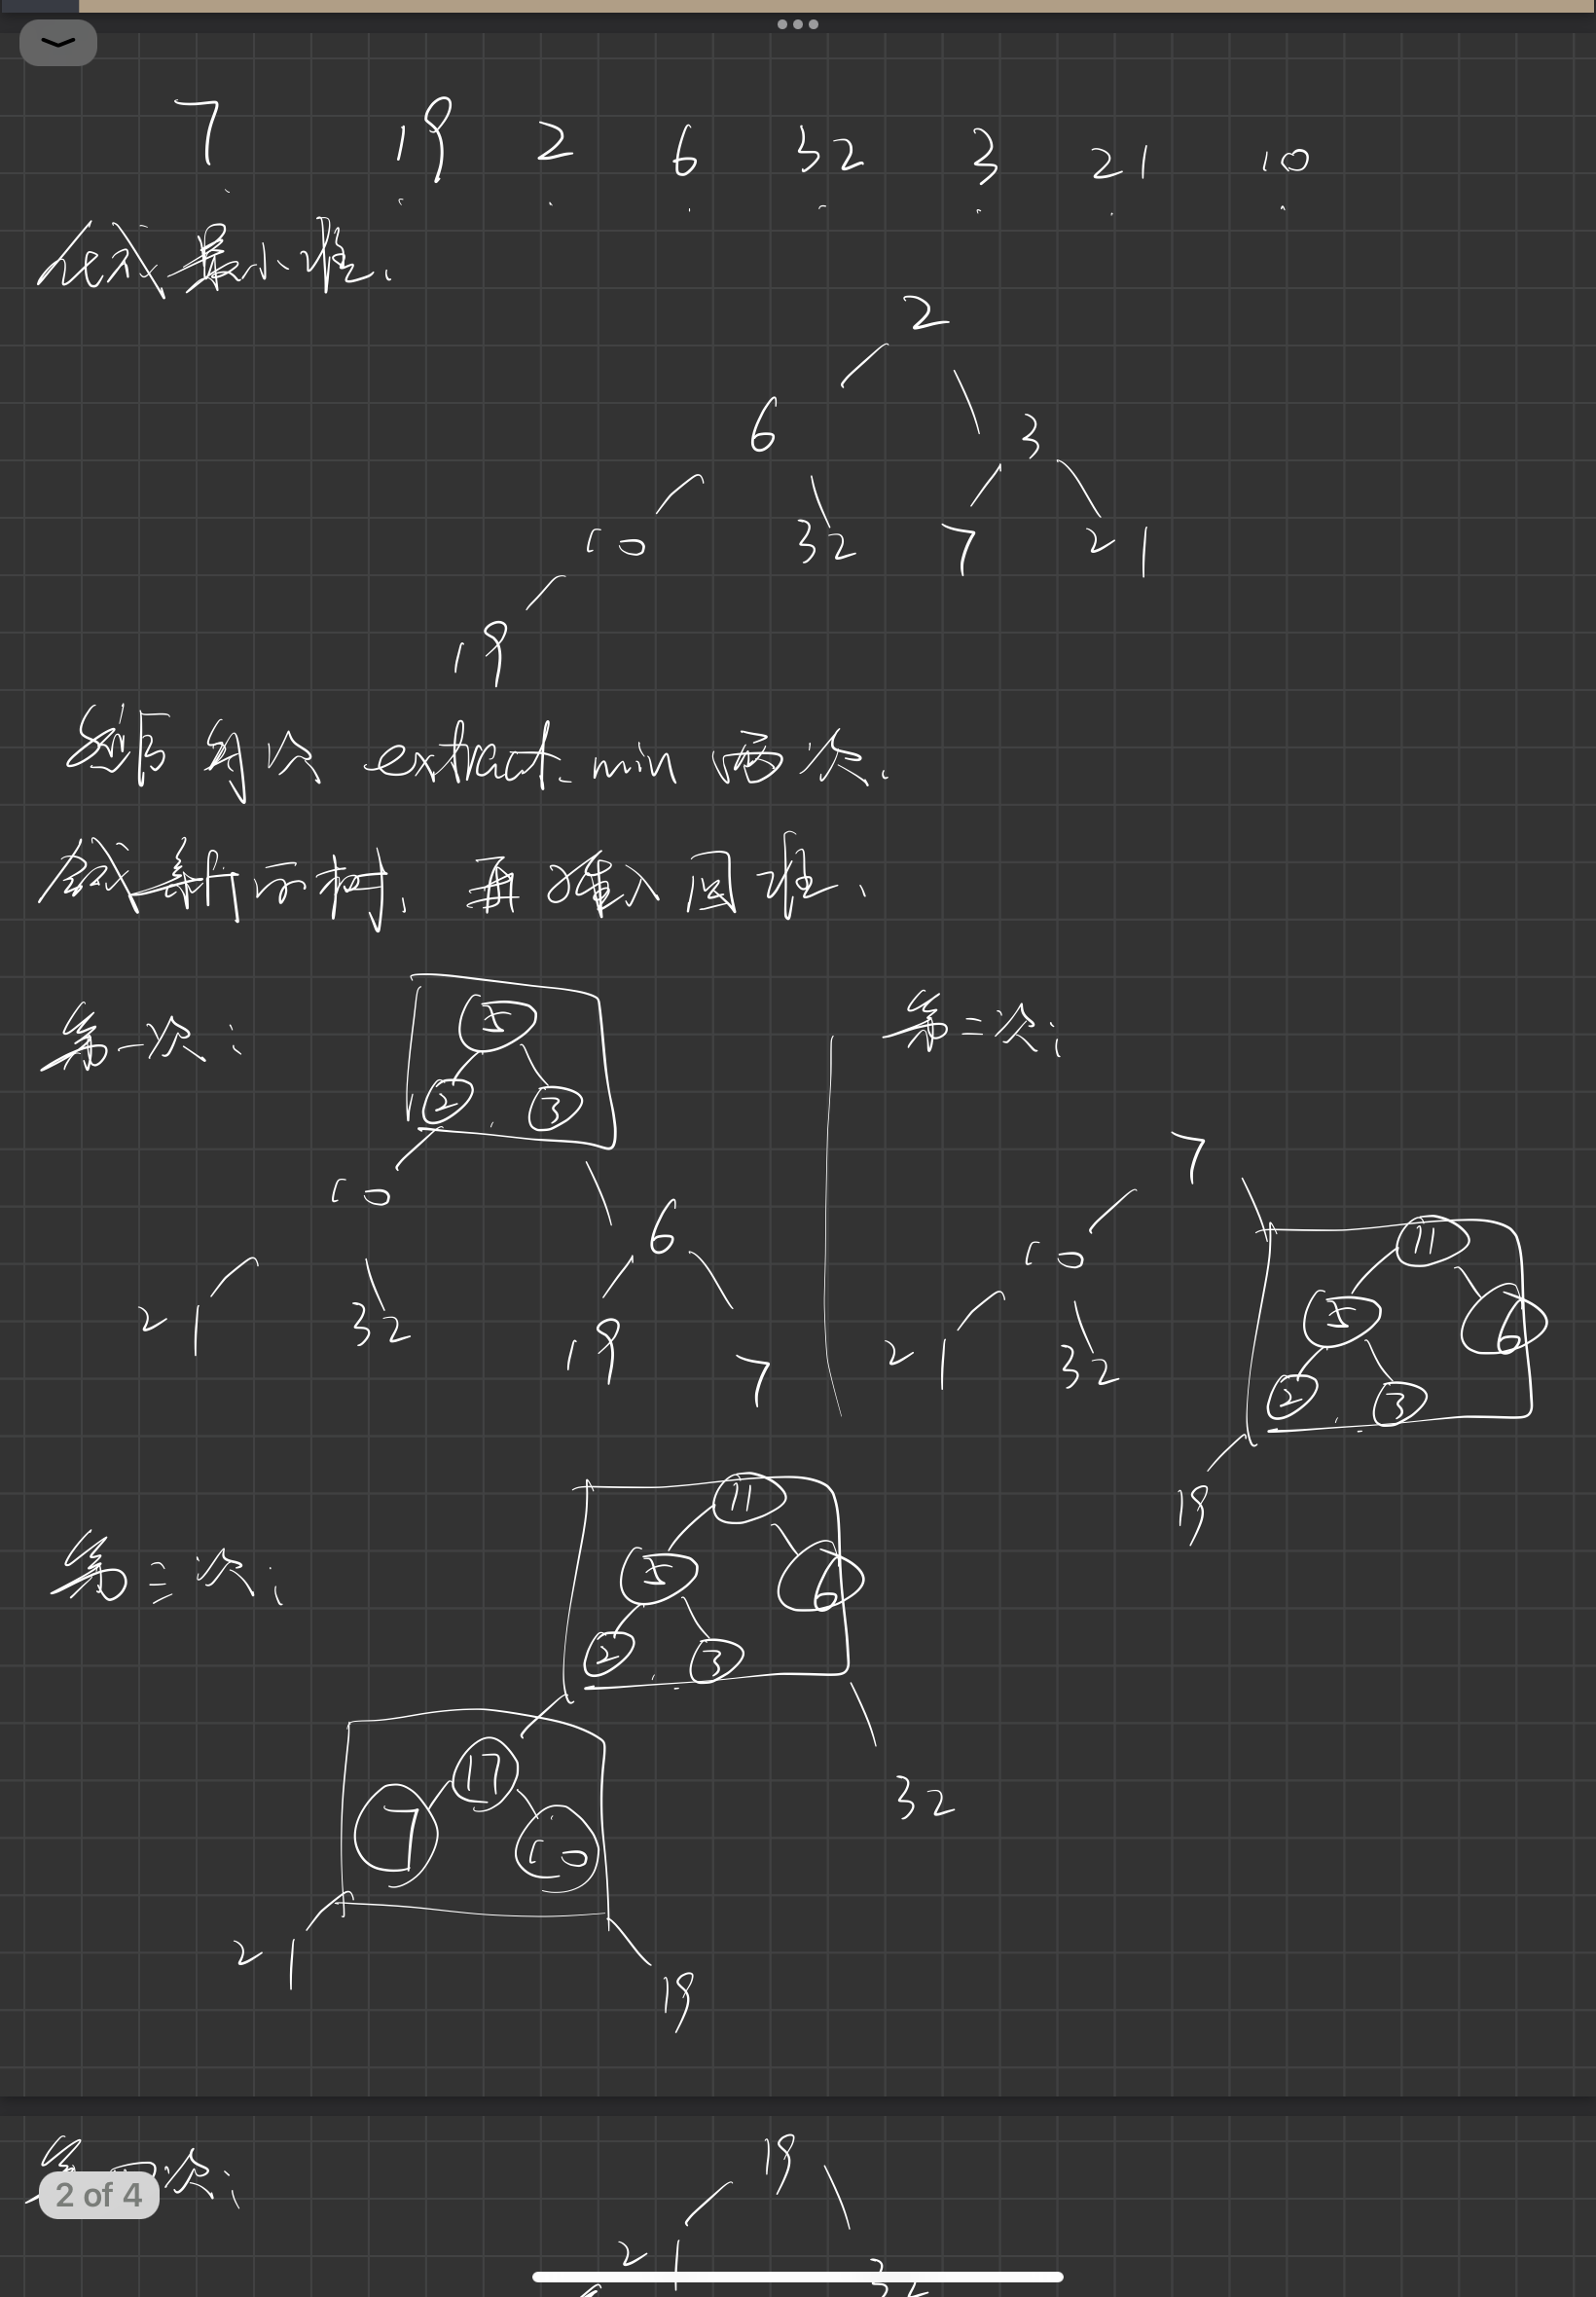 7 19 2 6 32 3 21 10
化成最小堆.
2
6 3
10 32 7 21
19
然后每次 extract-min 两次.
合成新的树, 再推入回堆.
第一次:
5
2 3
10
6
21 32 19 7
第二次:
7
10 11
5 6
21 32 2 3
19
第三次:
11
5 6
2 3
17
7 10
32
21 19
第四次:
19
21
2 of 4